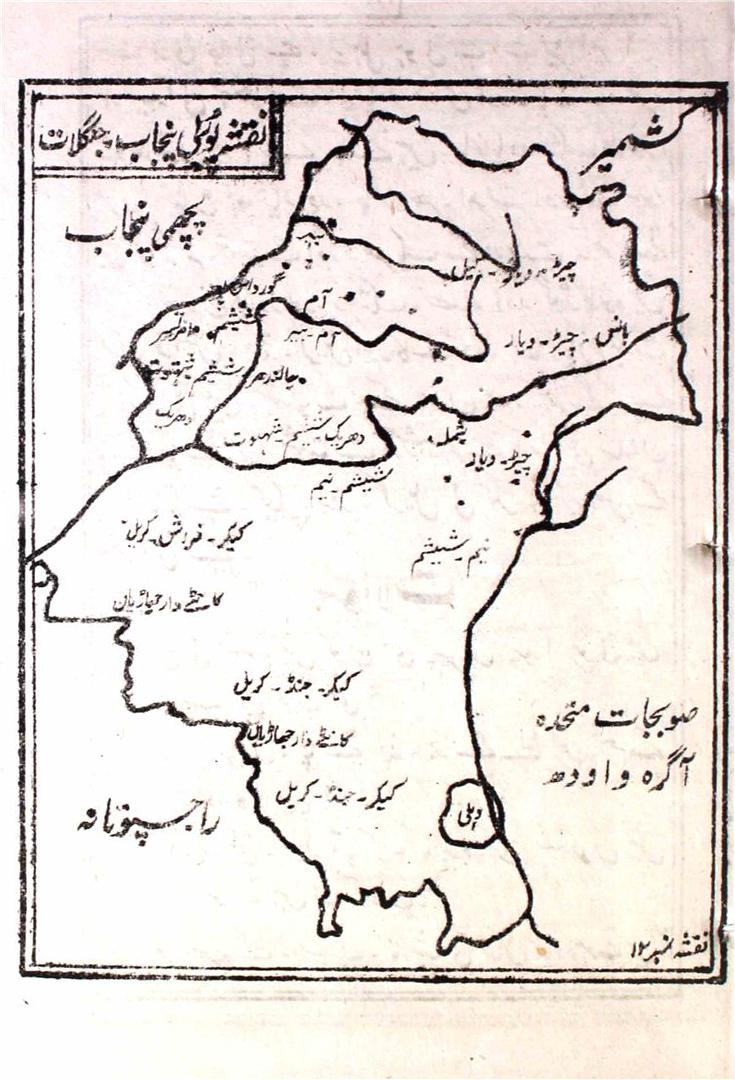 نقشہ پوربی پنجاب جنگلات
کشمیر
پچھمی پنجاب
بیر
چیڑ۔ دیار۔ کیل
آم
شیشم
امرتسر
آم۔ بیر
بانس۔ چیڑ۔ دیار
شیشم شہتوت
جالندھر
دھریک
دھریک۔ شیشم۔ شہتوت
شملہ
چیڑ۔ دیار
شیشم۔ نیم
نیم۔ شیشم
کیکر۔ فراش۔ کریل
کانٹے دار جھاڑیاں
کیکر۔ جنڈ۔ کریل
کانٹے دار جھاڑیاں
صوبجات متحدہ
آگرہ و اودھ
کیکر۔ جنڈ۔ کریل
دہلی
راجپوتانہ
نقشہ نمبر ۱۲